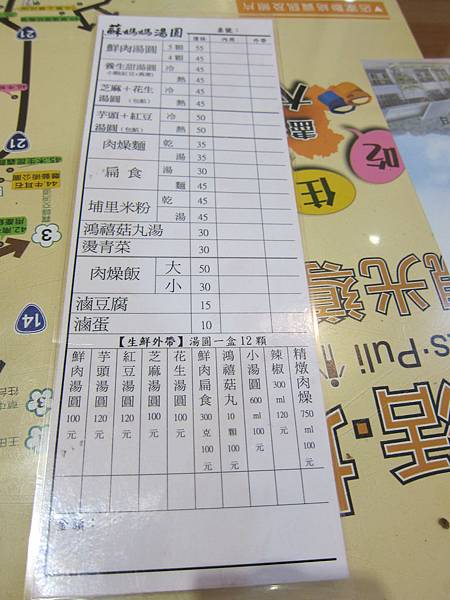 蘇媽媽湯圓 桌號:
價格 內用 外帶
鮮肉湯圓 5顆 55
4顆 45
養生甜湯圓 冷 45
熱 45
芝麻+花生 冷 45
湯圓(包餡) 熱 45
芋頭+紅豆 冷 50
湯圓(包餡) 熱 50
肉燥麵 乾 35
湯 35
扁食 湯 30
麵 45
埔里米粉 乾 45
湯 45
鴻禧菇丸湯 30
燙青菜 30
肉燥飯 大 50
小 30
滷豆腐 15
滷蛋 10
【生鮮外帶】湯圓一盒12顆
鮮肉湯圓100元
芋頭湯圓120元
紅豆湯圓120元
芝麻湯圓100元
花生湯圓100元
鮮肉扁食300克100元
鴻禧菇丸10顆100元
小湯圓600ml100元
辣椒300ml120元
精燉肉燥750ml100元
吃
住
盡
大
觀光導
s·Puli
活·
14
21
21
3
3